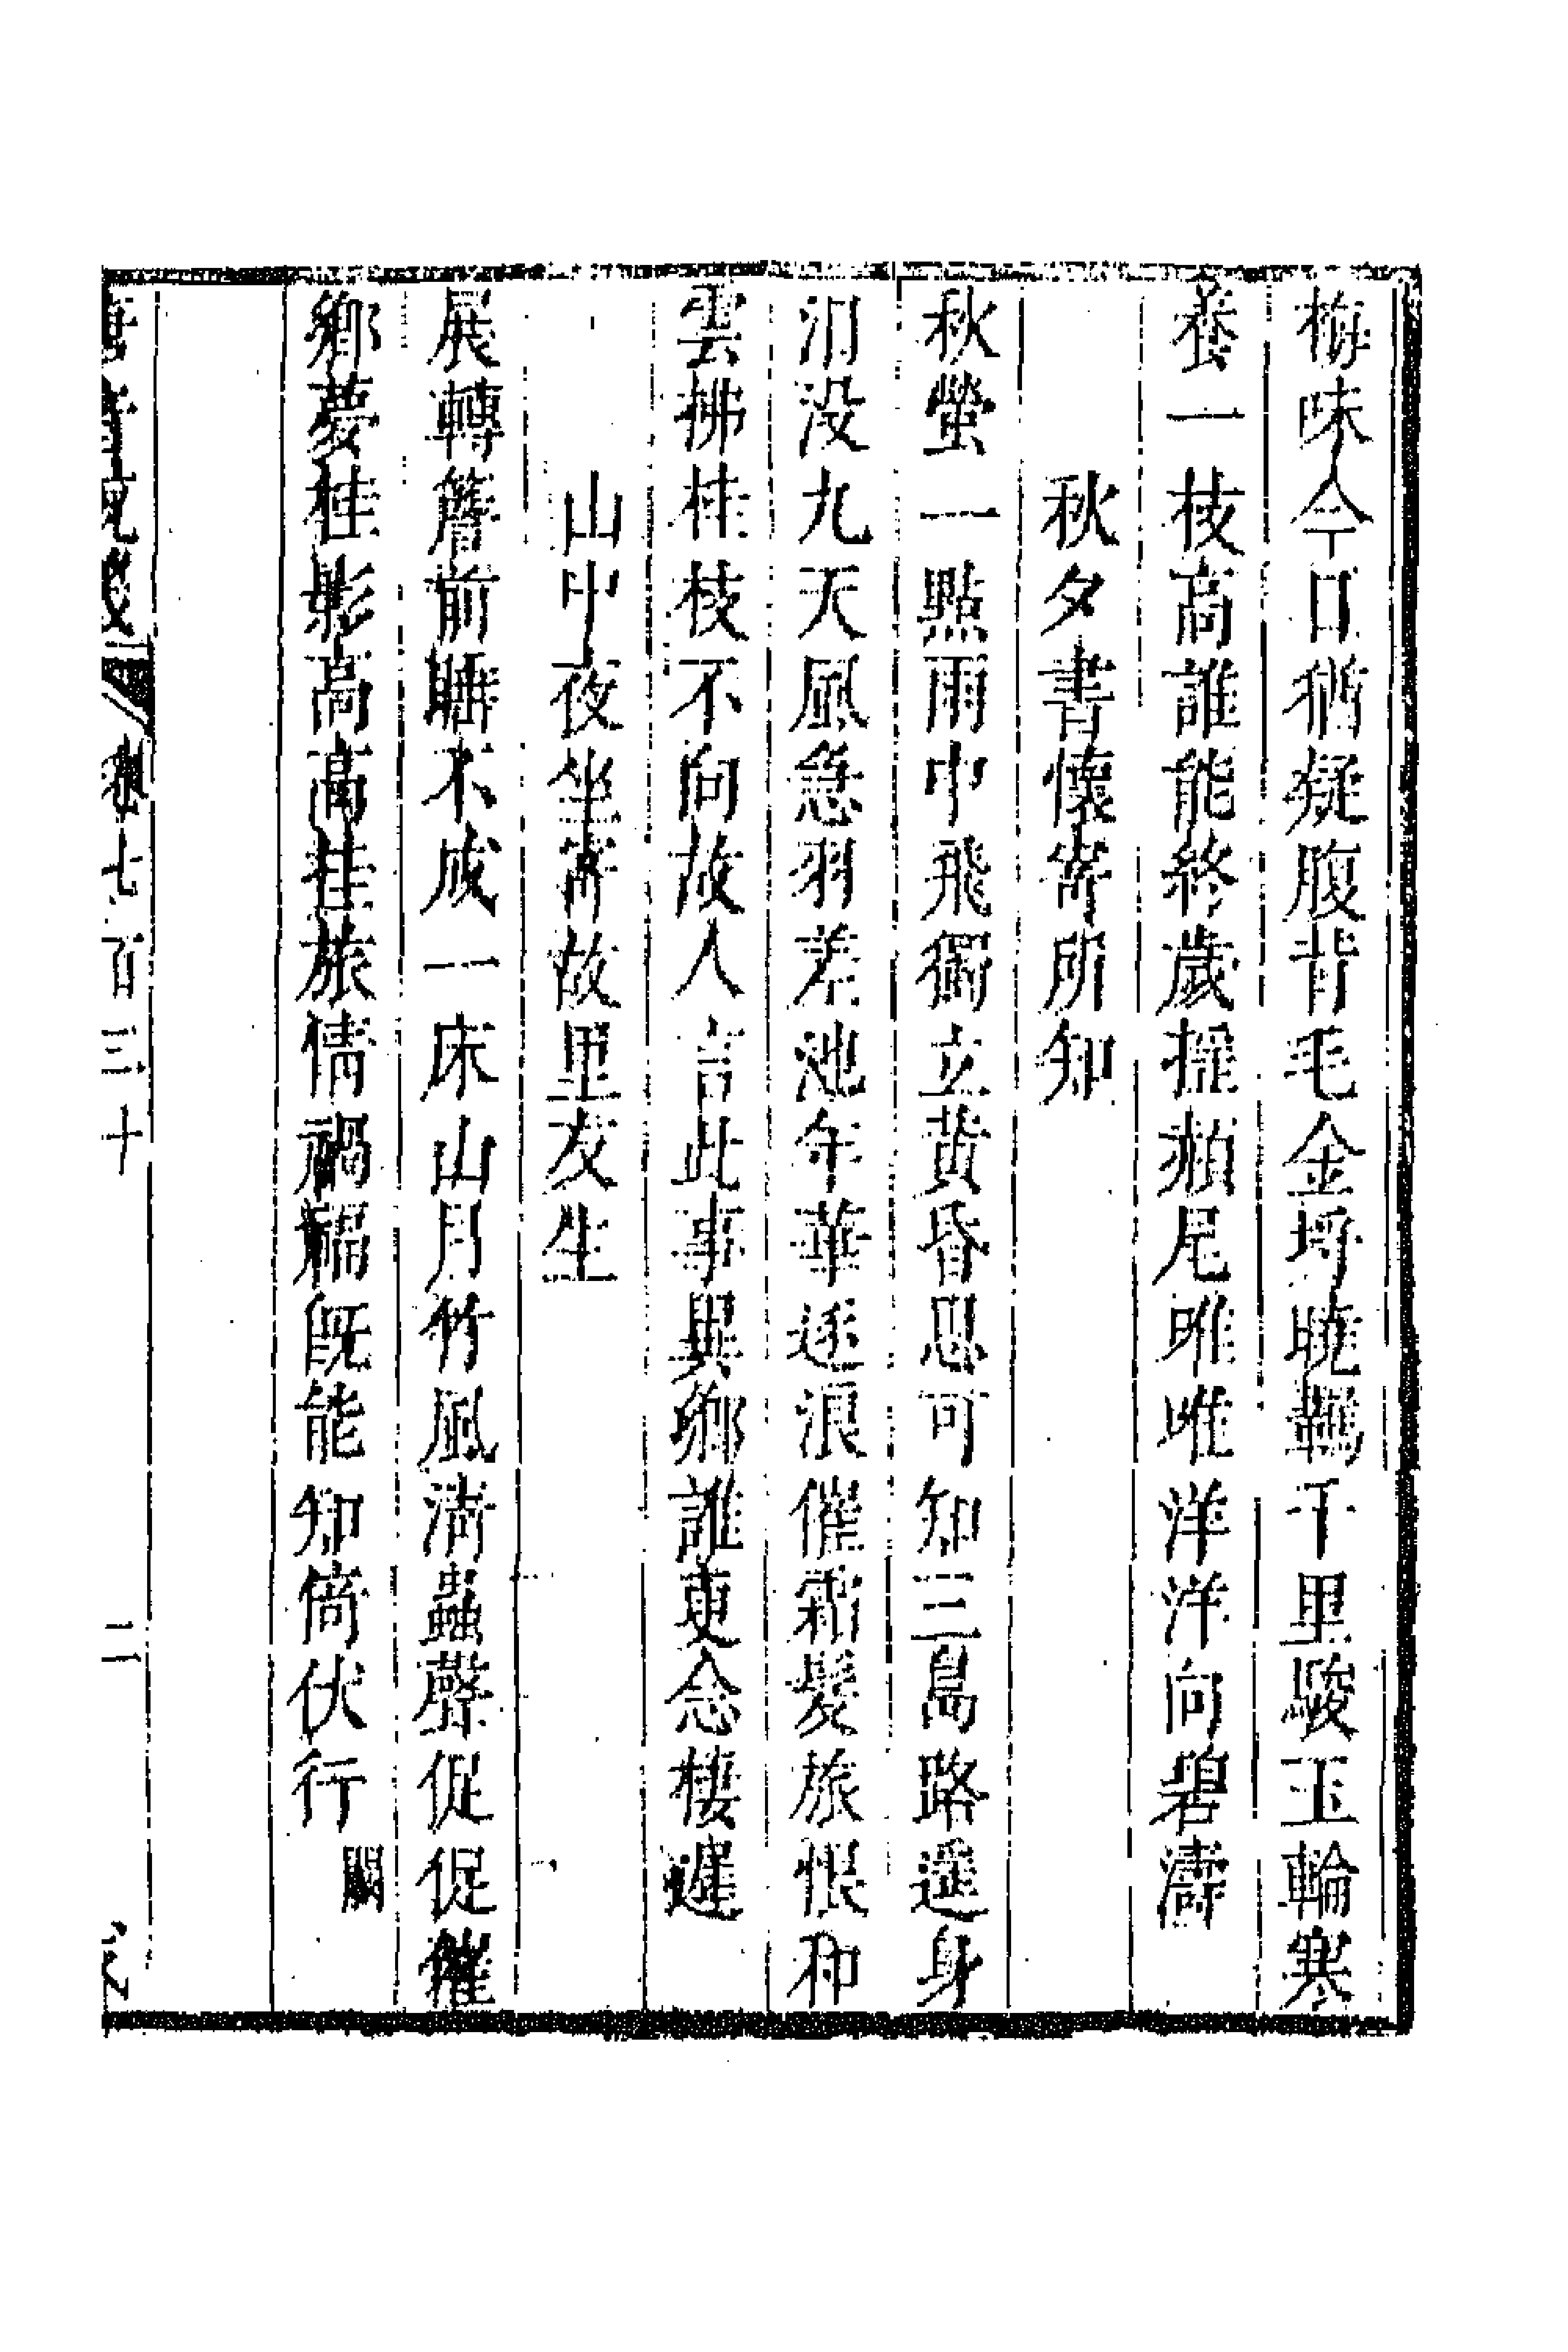 梅味今日猶疑腹背毛金埒曉羈千里駿玉輪寒
養一枝高誰能終歲搖頳尾唯唯洋洋向碧濤
秋夕書懷寄所知
秋螢一點雨中飛獨立黃昏思可知三島路遥身
汨没九天風急羽差池年華逐浪催霜髮旅恨和
雲拂桂枝不向故人言此事異鄉誰更念棲遲
山中夜坐寄故里友生
展轉簷前睡不成一床山月竹風清蟲聲促促催
鄉夢桂影高高挂旅情禍福既能知倚伏行 闕
卷七百三十
二